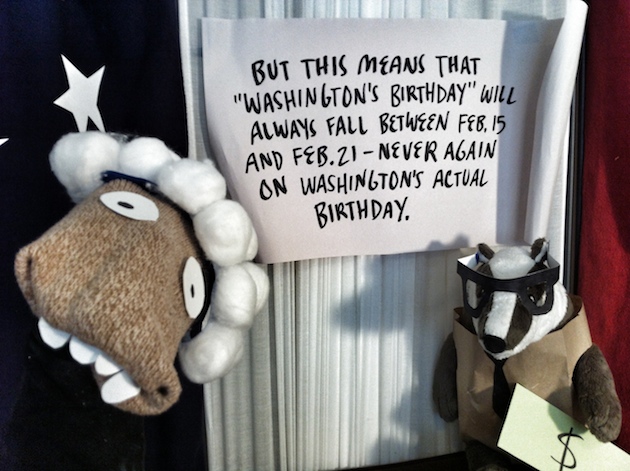 BUT THIS MEANS THAT
"WASHINGTON'S BIRTHDAY" WILL
ALWAYS FALL BETWEEN FEB. 15
AND FEB. 21 - NEVER AGAIN
ON WASHINGTON'S ACTUAL
BIRTHDAY.
$